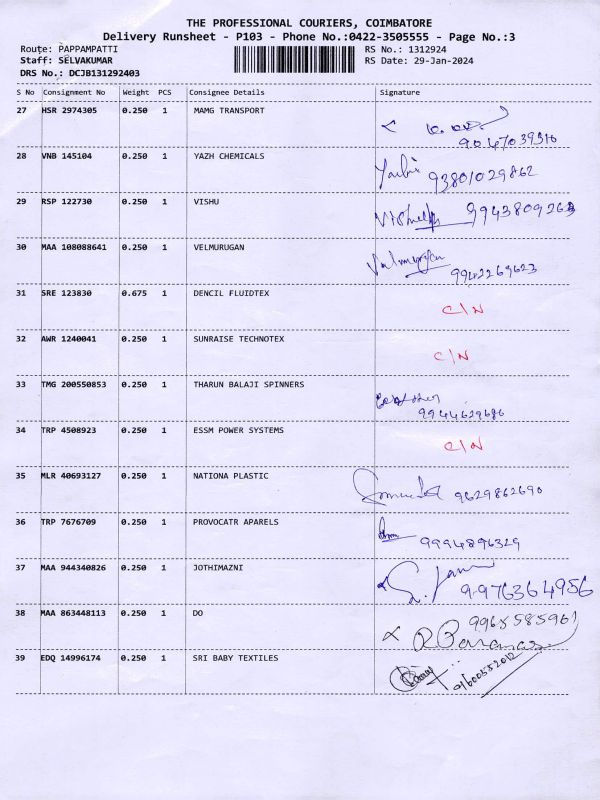 THE PROFESSIONAL COURIERS, COIMBATORE
Delivery Runsheet - P103 - Phone No.:0422-3505555 - Page No.:3
Route: PAPPAMPATTI RS No.: 1312924
Staff: SELVAKUMAR RS Date: 29-Jan-2024
DRS No.: DCJB131292403
S No Consignment No Weight PCS Consignee Details Signature
27 HSR 2974305 0.250 1 MAMG TRANSPORT
9047039316
28 VNB 145104 0.250 1 YAZH CHEMICALS
93801029862
29 RSP 122730 0.250 1 VISHU
9943809263
30 MAA 108088641 0.250 1 VELMURUGAN Velmurugan
9942269623
31 SRE 123830 0.675 1 DENCIL FLUIDTEX
C/N
32 AWR 1240041 0.250 1 SUNRAISE TECHNOTEX
C/N
33 TMG 200550853 0.250 1 THARUN BALAJI SPINNERS
9944629686
34 TRP 4508923 0.250 1 ESSM POWER SYSTEMS
C/N
35 MLR 40693127 0.250 1 NATIONA PLASTIC
9629862690
36 TRP 7676709 0.250 1 PROVOCATR APARELS
9994896329
37 MAA 944340826 0.250 1 JOTHIMAZNI
9976364956
38 MAA 863448113 0.250 1 DO
9965585961
39 EDQ 14996174 0.250 1 SRI BABY TEXTILES